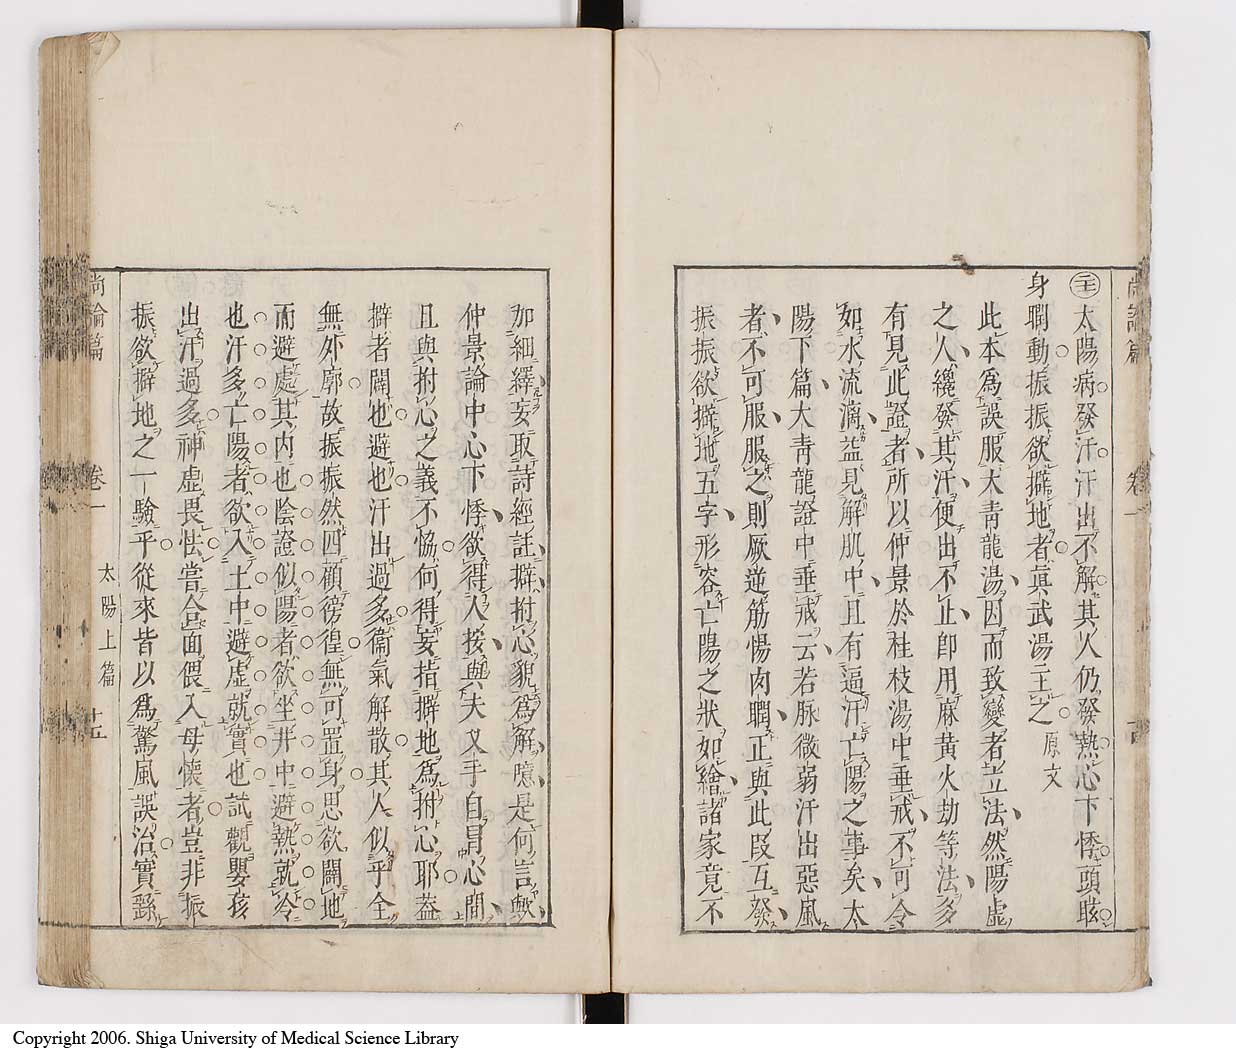 尚論篇
卷一
㊁太陽病發汗汗出不解其人仍發熱心下悸頭眩
身瞤動振振欲擗地者眞武湯主之 原文
此本爲誤服大青龍湯因而致變者立法然陽虛
之人纔發其汗便出不止卽用麻黄火劫等法多
有見此證者所以仲景於桂枝湯中垂戒不可令
如水流漓益見解肌中且有逼汗亡陽之事矣太
陽下篇大青龍證中垂戒云若脉微弱汗出惡風
者不可服服之則厥逆筋惕肉瞤正與此段互發
振振欲擗地五字形容亡陽之狀如繪諸家竟不
加細繹妄取詩經註擗拊心貌爲解噫是何言歟
仲景論中心下悸欲得入按與夫叉手自冒心間
且與拊心之義不恊何得妄指擗地爲拊心耶葢
擗者闢也避也汗出過多衞氣解散其人似乎全
無外廓故振振然四顧徬徨無可置身思欲闢地
而避處其内也陰證似陽者欲坐井中避熱就冷
也汗多亡陽者欲入土中避虛就實也試觀嬰孩
出汗過多神虛畏怯嘗合面偎入母懷者豈非振
振欲擗地之一驗乎從來皆以爲驚風誤治實繇
尚論篇
卷一
太陽上篇
十五
Copyright 2006. Shiga University of Medical Science Library